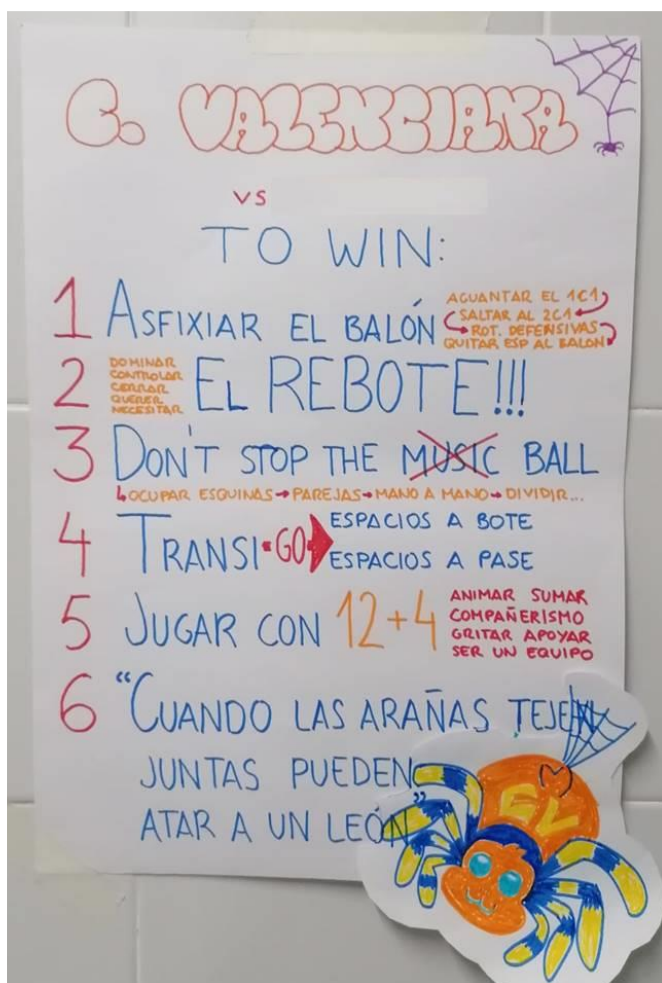 C. VALENCIANA
VS
TO WIN:
1 ASFIXIAR EL BALÓN
AGUANTAR EL 1C1
SALTAR AL 2C1
ROT. DEFENSIVAS
QUITAR ESP AL BALON
2
DOMINAR
CONTROLAR
CERRAR
QUERER
NECESITAR
EL REBOTE!!!
3 DON'T STOP THE MUSIC BALL
OCUPAR ESQUINAS → PAREJAS → MANO A MANO → DIVIDIR...
4 TRANSI-GO
ESPACIOS A BOTE
ESPACIOS A PASE
5 JUGAR CON 12+4
ANIMAR SUMAR
COMPAÑERISMO
GRITAR APOYAR
SER UN EQUIPO
6 "CUANDO LAS ARAÑAS TEJEN
JUNTAS PUEDEN
ATAR A UN LEÓN"
CV